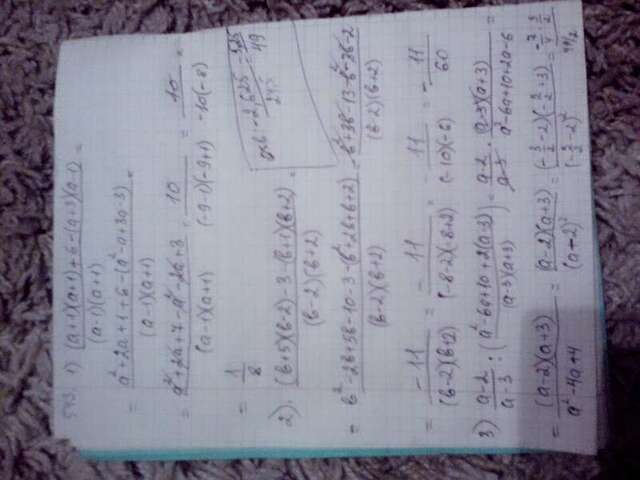 593 1) (a+1)(a+1)+6-(a+3)(a-1) / (a-1)(a+1) =
= a²+2a+1+6-(a²-a+3a-3) / (a-1)(a+1) =
= a²+2a+7-a²-2a+3 / (a-1)(a+1) = 10 / (-9-1)(-9+1) = 10 / -10(-8) =
= 1/8
2). (b+5)(b-2)-3-(b+1)(b+2) / (b-2)(b+2) =
= b²-2b+5b-10-3-(b²+2b+b+2) / (b-2)(b+2) = b²+3b-13-b²-3b-2 / (b-2)(b+2)
= -11 / (b-2)(b+2) = - 11 / (-8-2)(-8+2) = - 11 / (-10)(-6) = - 11/60
3) a-2 / a-3 : (a²-6a+10+2(a-3) / (a-3)(a+3)) = a-2 / a-3 · (a-3)(a+3) / a²-6a+10+2a-6
= (a-2)(a+3) / a²-4a+4 = (a-2)(a+3) / (a-2)² = (-3/2-2)(-3/2+3) / (-3/2-2)²